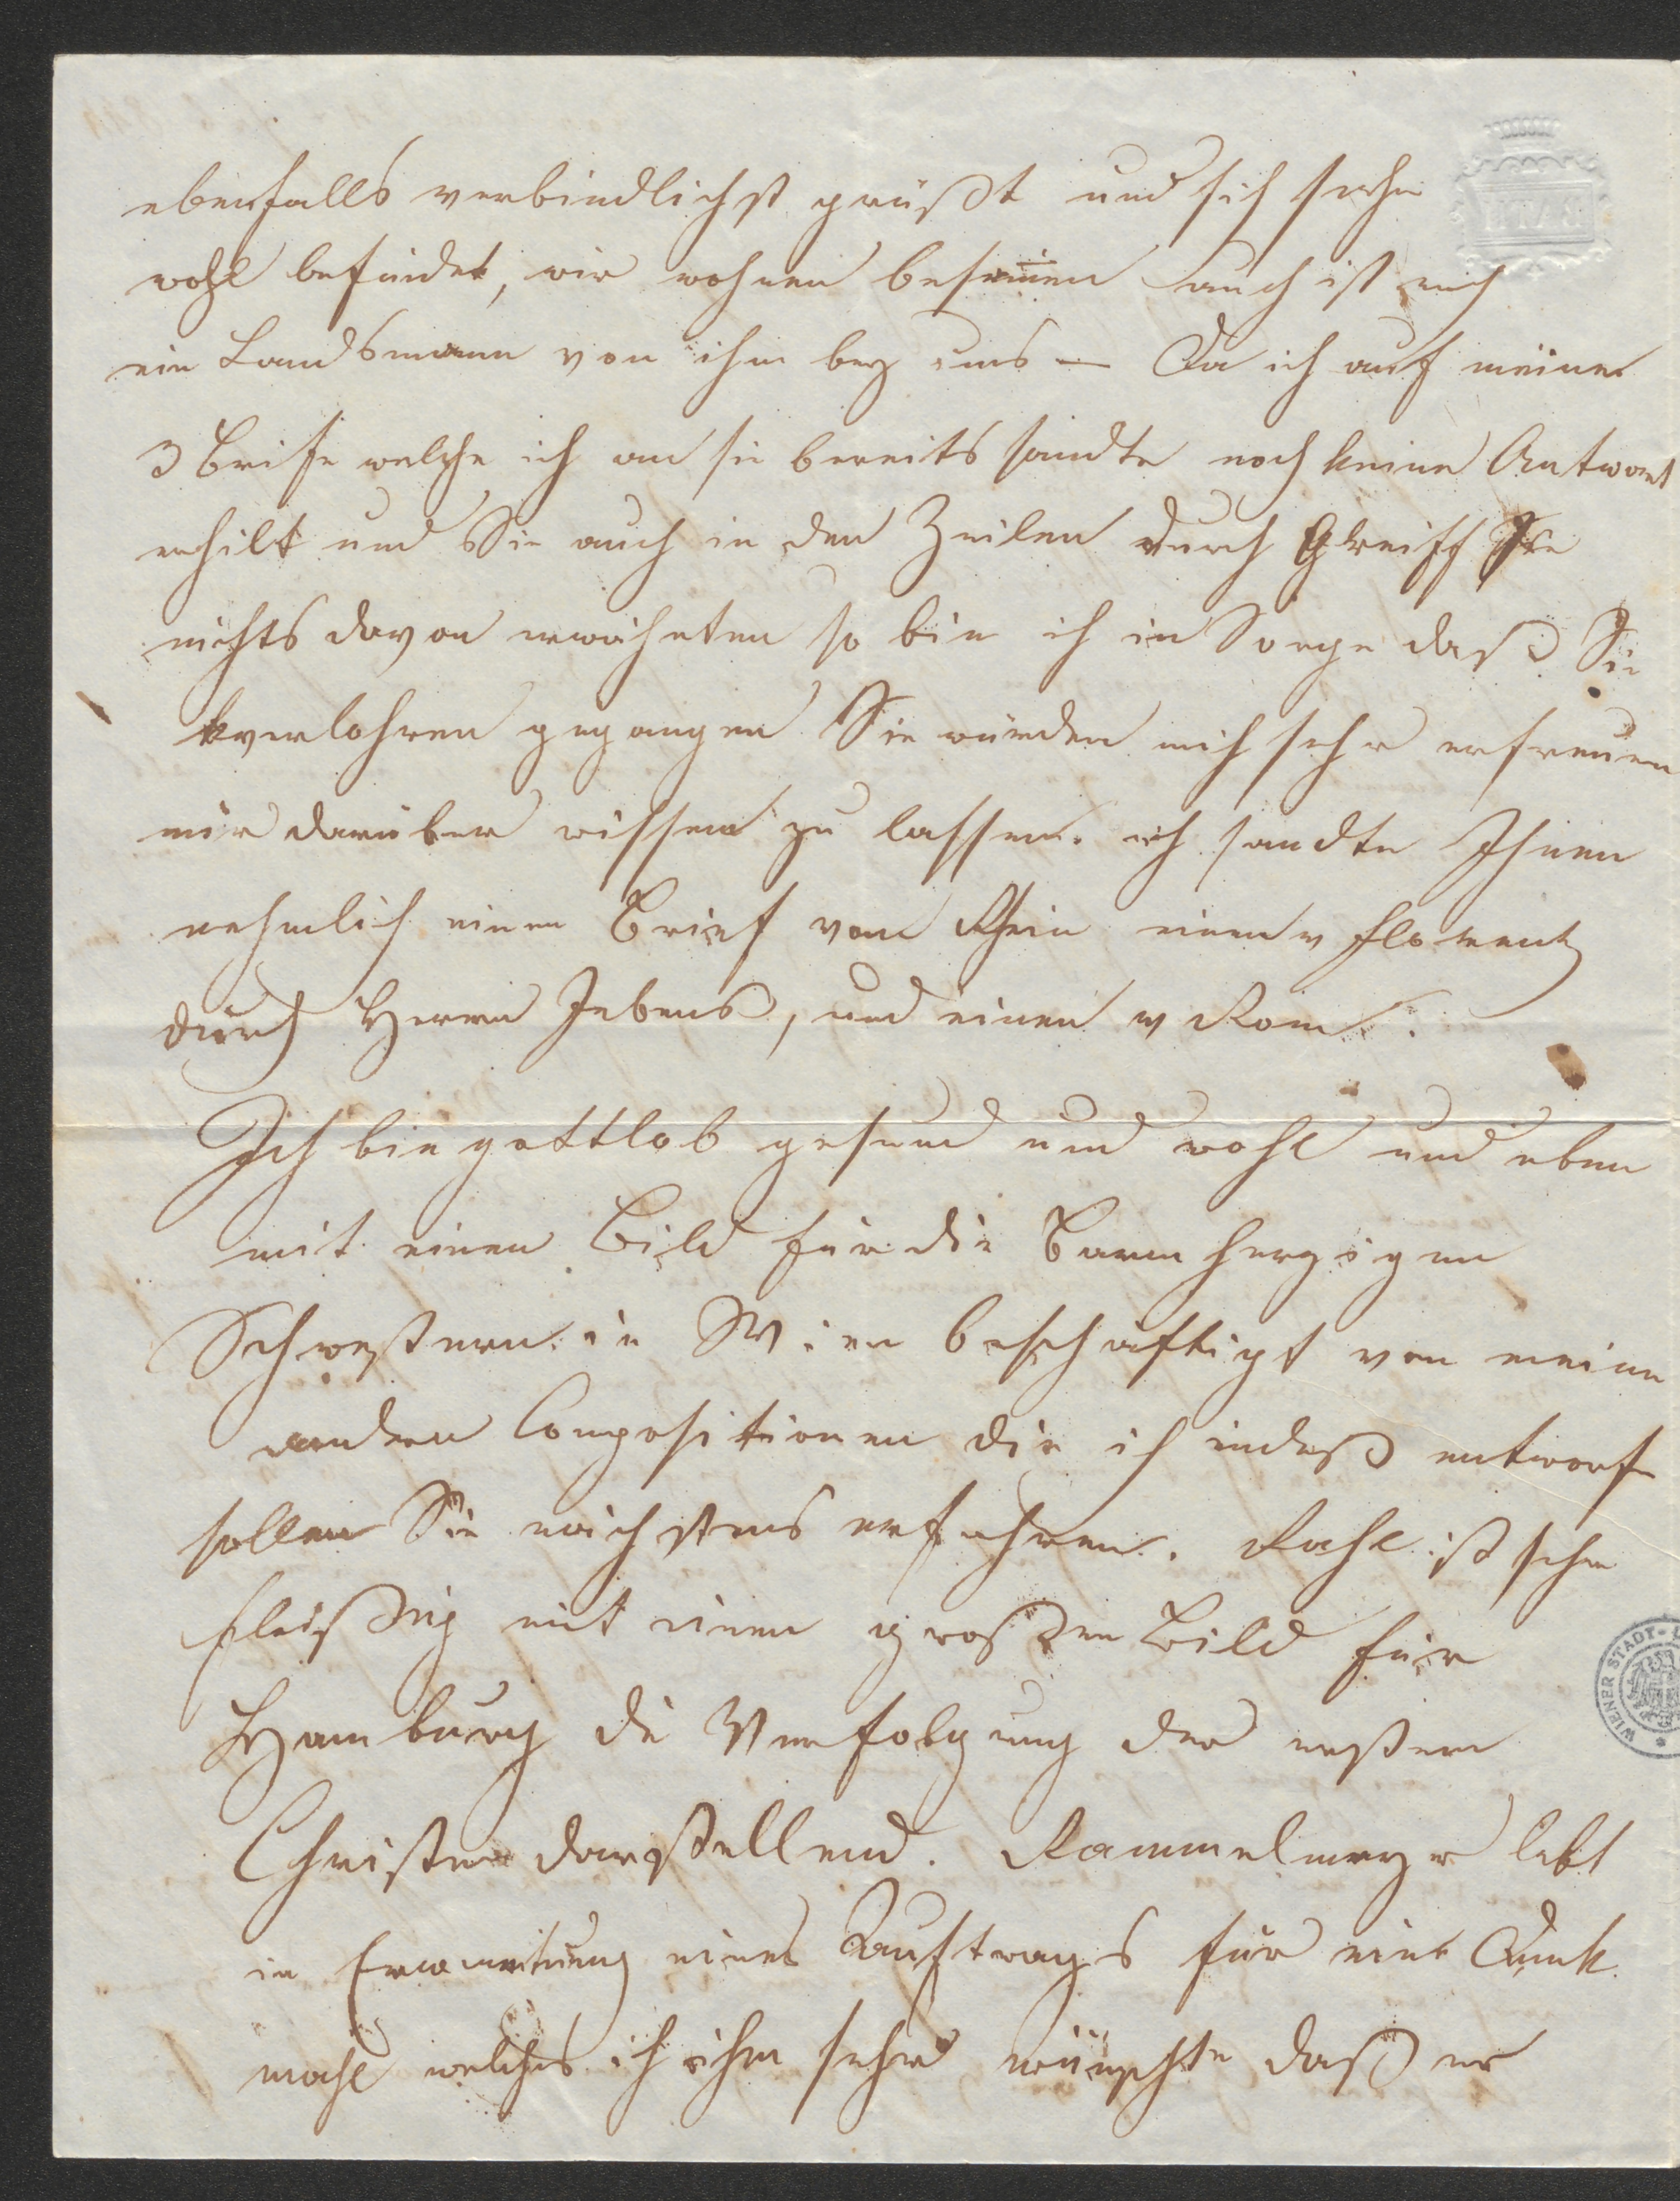 ebenfalls verbindlichst grüßt und sich sehr
wohl befindet, wir wohnen beisamen auch ist noch
ein Landsmann von ihm bey uns — Da ich auf meine
3 Briefe welche ich an sie bereits sandte noch keine Antwort
erhilt und Sie auch in den Zeilen durch Greiff
nichts davon erwähnten so bin ich in Sorge daß Sie
verlohren gegangen Sie würden mich sehr erfreuen
mir darüber wissen zu lassen. ich sandte Ihnen
nehmlich einen Brief vom Rhein einen v Florenz
durch Herrn Jebens, und einen v Rom.
Ich bin gottlob gesund und wohl und eben
mit einen Bild für die Barmherzigen
Schwestern in Wien beschäftigt von meine
andern Compositionen die ich indeß entworfen
sollen Sie nächstens erfahren. Rahl ist sehr
fleißig mit einen großen Bild für
Hamburg die Verfolgung der ersten
Christen darstellend. Rammelmeyer lebt
in Erwartung eines Auftrags für eine Denk
mahl welches ich ihm sehr wünschte daß er
WIENER STADT-